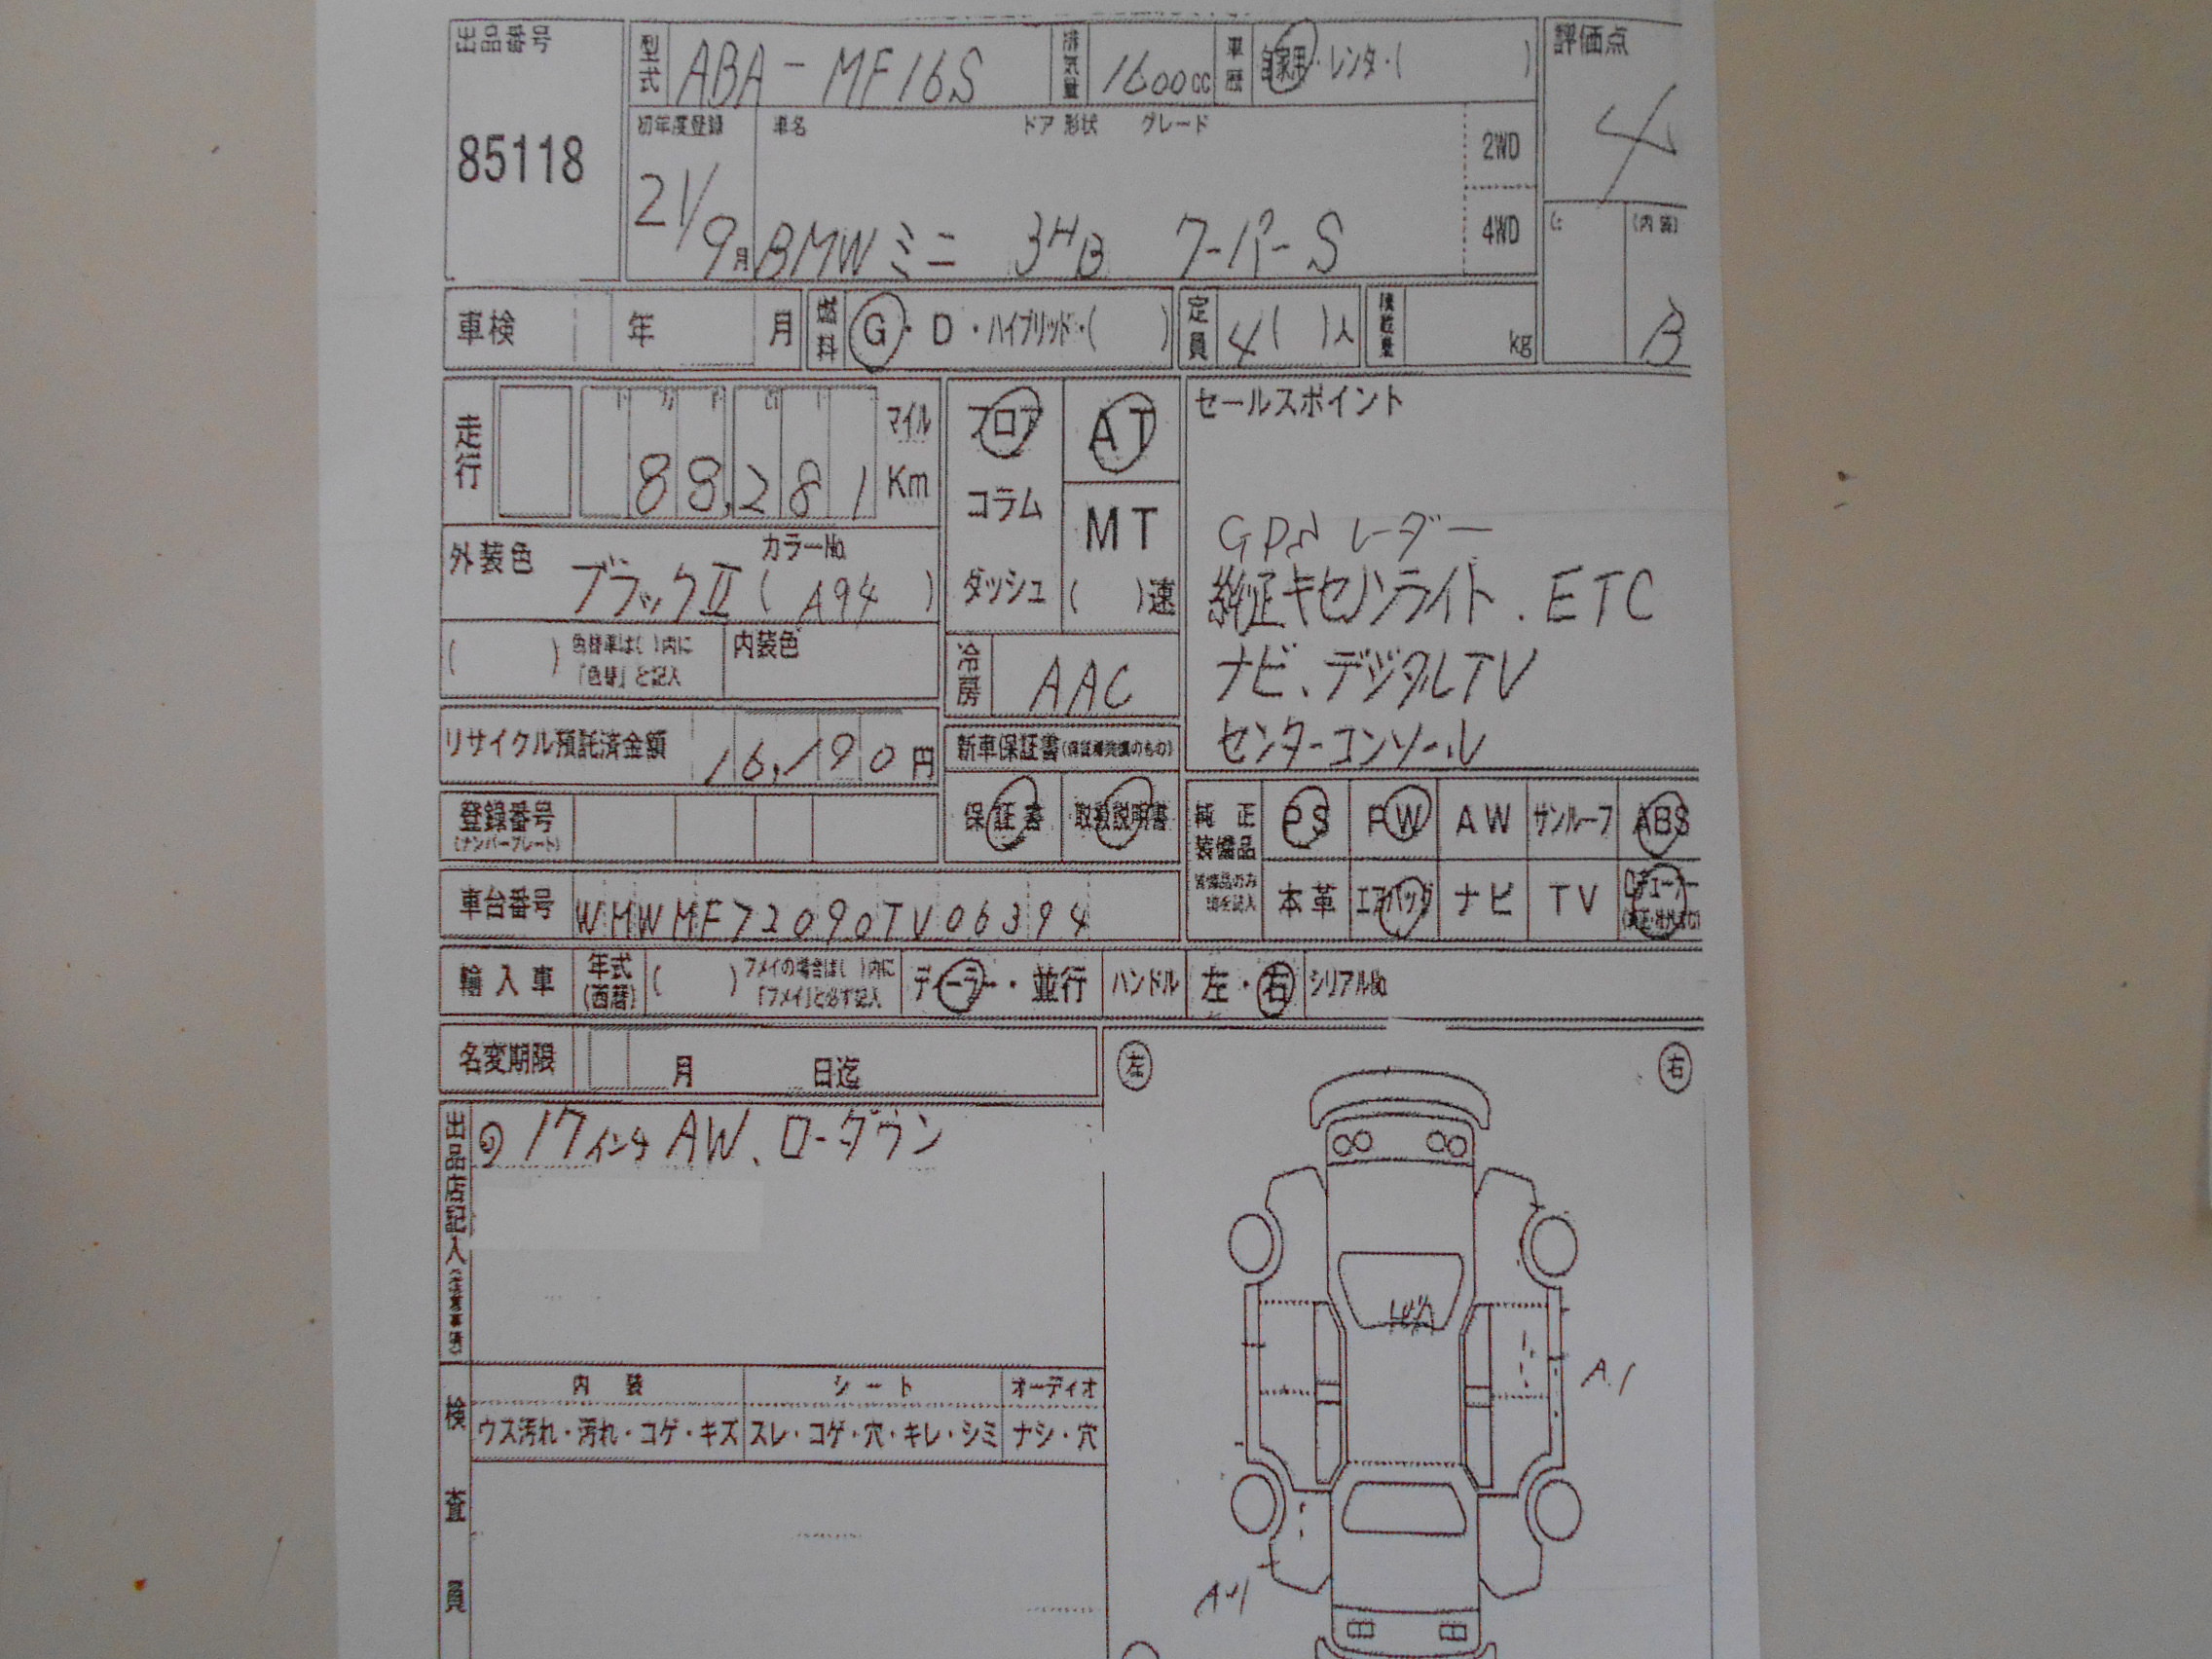 出品番号
85118
型式 ABA-MF16S 排気量 1600cc 車歴 自家用・レンタ・( )
評価点
4
初年度登録 車名 ドア 形状 グレード
21/9月 BMWミニ 3HB クーパーS
2WD
4WD
(内装)
B
車検 年 月 燃料 G・D・ハイブリッド・( ) 定員 4( )人 積載量 kg
走行 88,281 マイル Km
フロア AT
コラム MT
ダッシュ ( )速
セールスポイント
GPSレーダー
純正キセノンライト.ETC
ナビ、デジタルTV
センターコンソール
外装色 カラーNo.
ブラックII ( A94 )
( ) 色替車は( )内に「色替」と記入 内装色
冷房 AAC
リサイクル預託済金額 16,190円
新車保証書
保証書 取扱説明書
登録番号
(ナンバープレート)
純正装備品 PS PW AW サンルーフ ABS
本革 エアバッグ ナビ TV
車台番号 WMWMF72090TV06394
輸入車 年式(西暦) ( ) フメイの場合は( )内に「フメイ」と必ず記入 ディーラー・並行 ハンドル 左・右 シリアルNo.
名変期限 月 日迄
左 右
出品店記入
17インチAW、ローダウン
検査員
内装 シート オーディオ
ウス汚れ・汚れ・コゲ・キズ スレ・コゲ・穴・キレ・シミ ナシ・穴
A.1